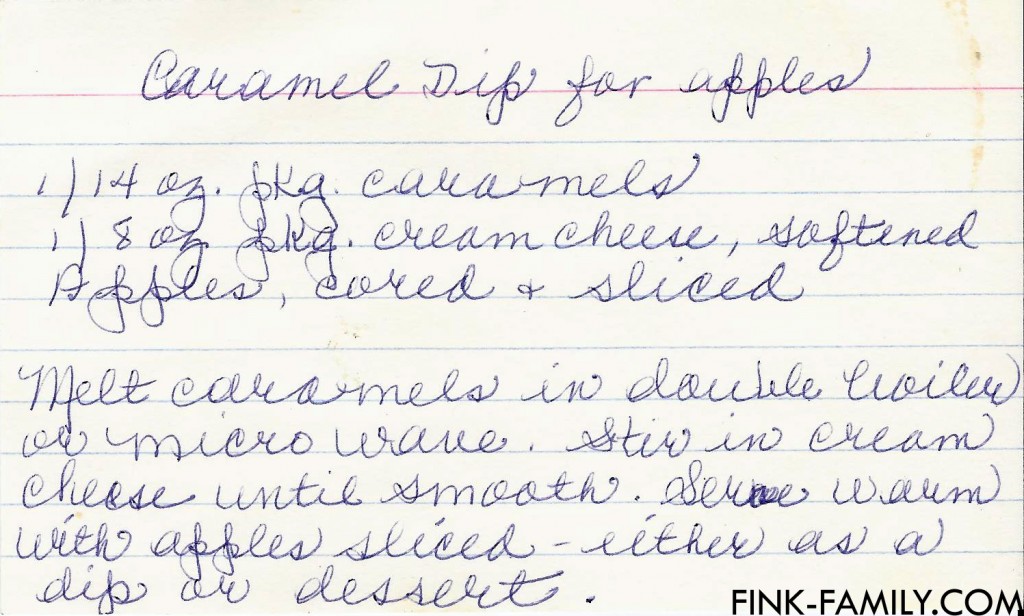 Caramel Dip for apples
1) 14 oz. pkg. caramels
1) 8 oz pkg. cream cheese, softened
Apples, cored + sliced
Melt caramels in double boiler
or microwave. Stir in cream
cheese until smooth. Serve warm
with apples sliced - either as a
dip or dessert.
FINK-FAMILY.COM